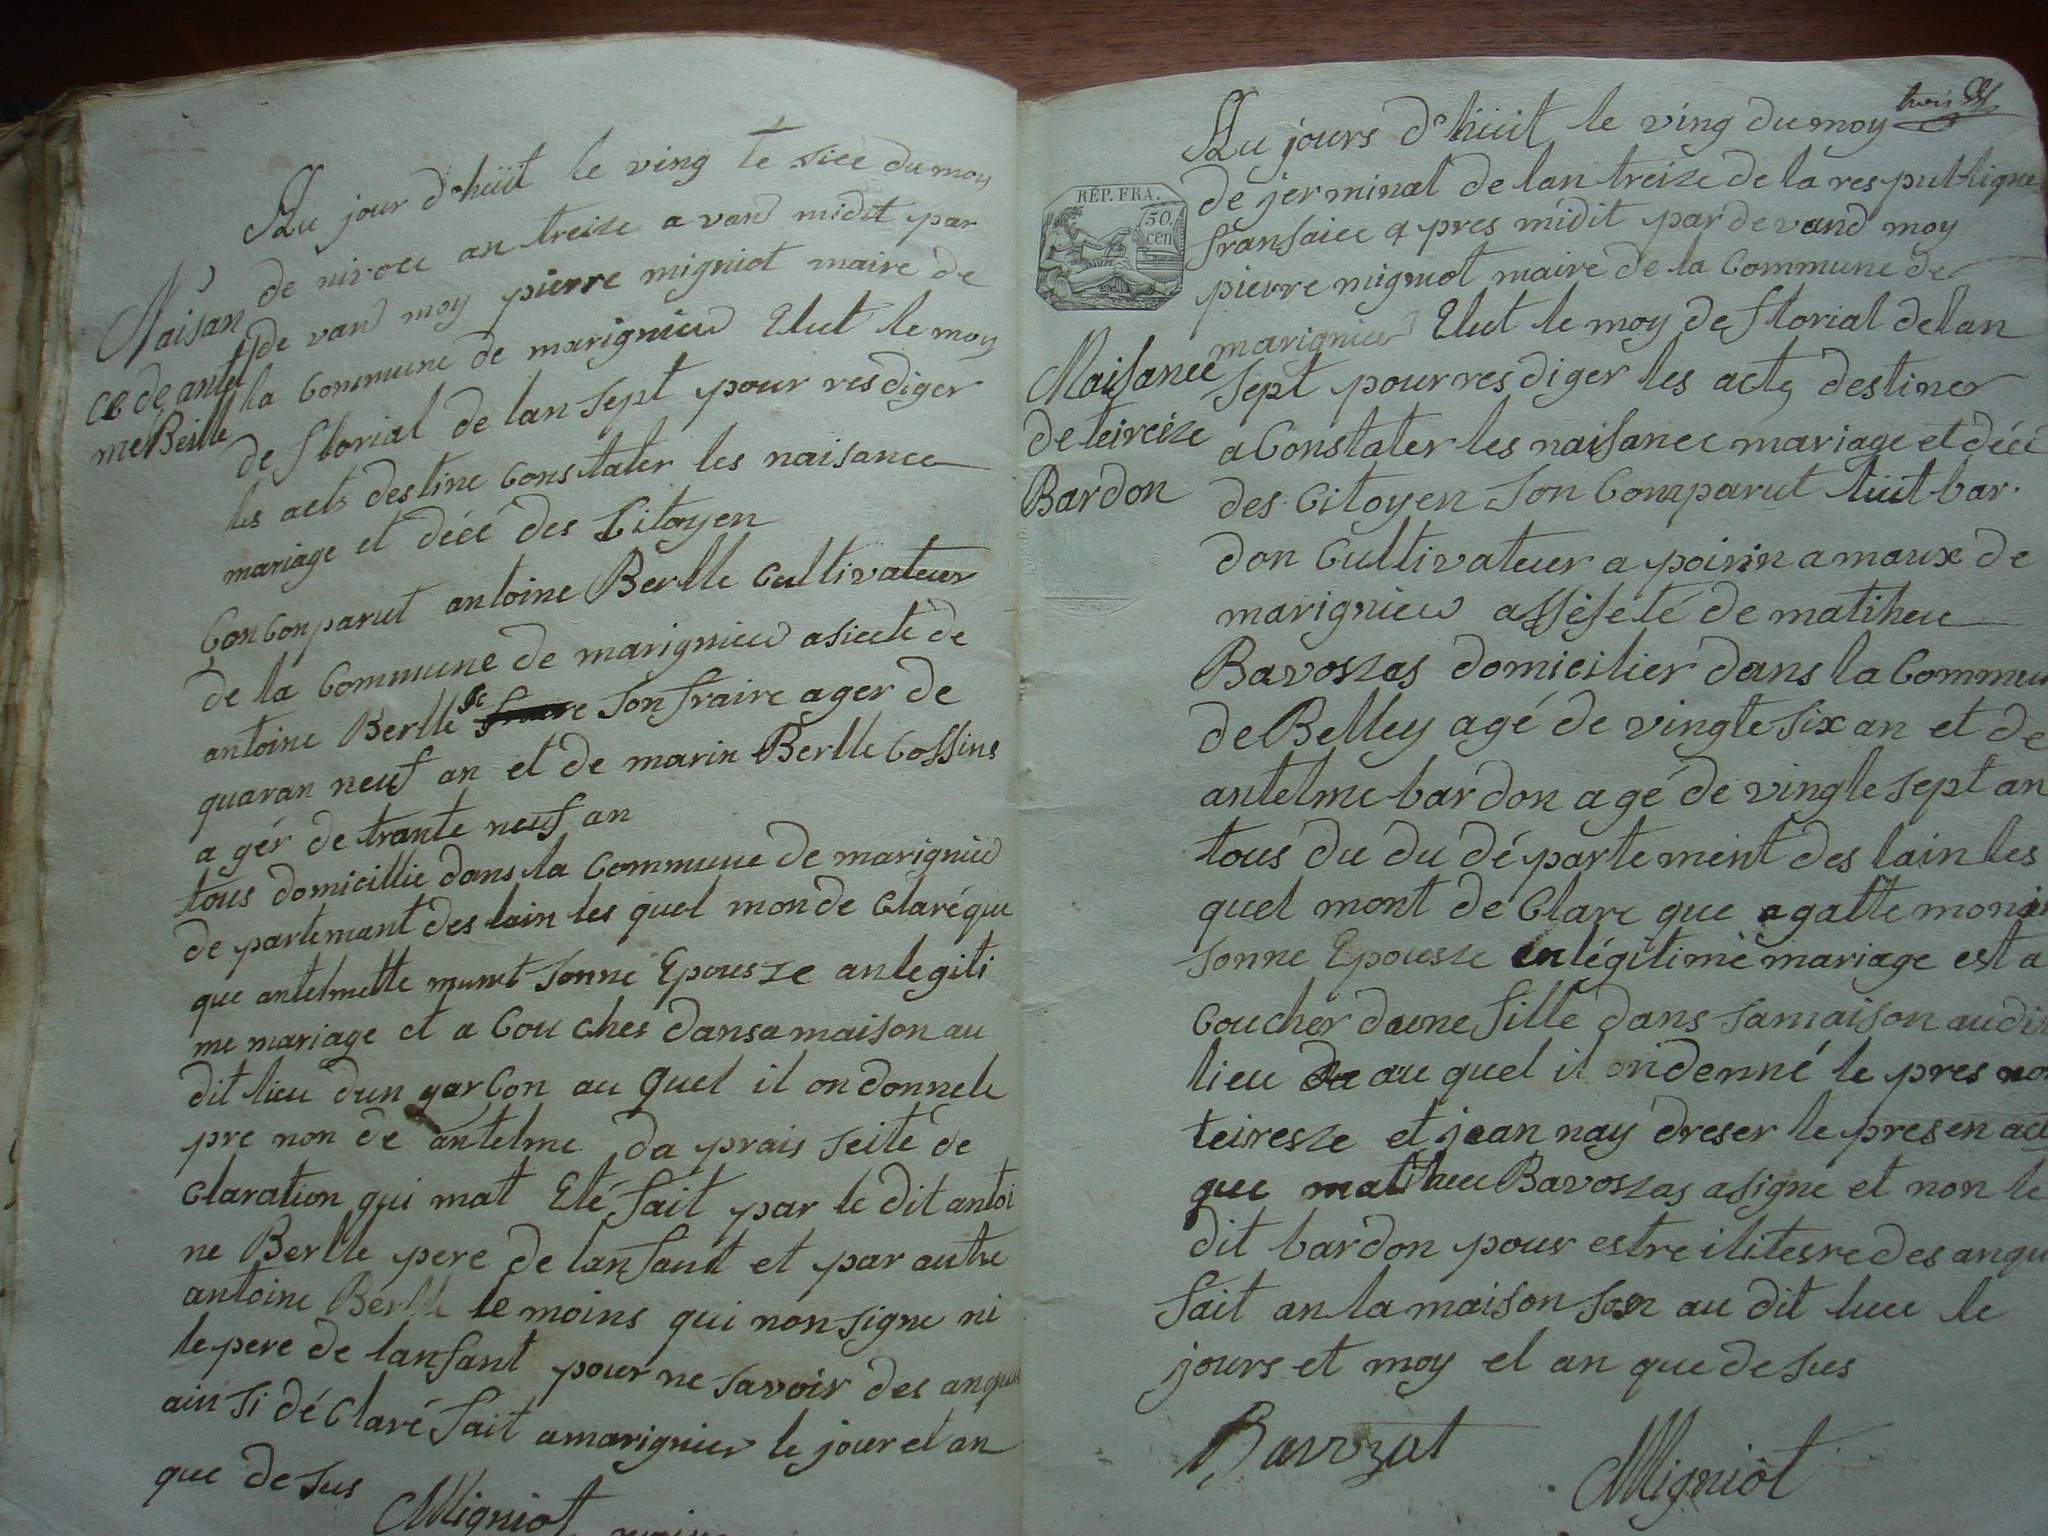 Au jour d'huit le ving te sice du moy
de nivoce an treize avand midit par
de vand moy pierre migniot maire de
la Commune de marignieu Elut le moy
de florial de lan sept pour resdiger
les acts destine Constater les naisance
mariage et décé des Citoyen
Naisan
ce de antel
me Berlle
Çon Conparut antoine Berlle Cultivateur
de la Commune de marignieu asicté de
antoine Berlle de son fraire ager de
quaran neuf an et de marin Berlle Cossins
a gér de trante neuf an
tous domicillie dans la Commune de marignieu
de partemant des lain les quel mon de Claré que
que antelmette son ne Epousze an legiti
me mariage et a Cou ches dansa maison au
dit lieu dun garçon au quel il on donne le
pre non de antelme da prais seite de
Claration qui mat Eté fait par le dit antoi
ne Berlle pere de lanfant et par autre
antoine Berlle le moins qui non signe ni
le pere de lanfant pour ne savoir des anquis
ain si dé Claré fait a marignieu le jour et an
que de sus
Migniot maire
trois
Au jours d'huit le ving du moy
de jerminal de lan treize de la res publique
fransaice a pres midit par de vand moy
pierre migniot maire de la Commune de
marignieu Elut le moy de florial de lan
sept pour resdiger les acts destiner
a Constater les naisance mariage et décé
des Citoyen son Comparut luit bar
don Cultivateur a poirin a maux de
marignieu assisté de matiheu
Bavoszas domicilier dans la Commu
de Belley agé de vingte six an et de
antelme bardon agé de vingte sept an
tous du du département des lain les
quel mont de Clare que agatte
sonne Epousze en légitime mariage est a
Coucher daune fille dans sa maison audi
lieu au quel il ondenné le pres non
teiresze et jean nay dreser le presen act
que matiheu Bavoszas a signe et non le
dit bardon pour estre ilitesre des anqu
fait an la maison son au dit lieu le
jours et moy el an que de sus
RÉP. FRA.
50
cen
Naisance
de teireize
Bardon
Bavozat
Migniot